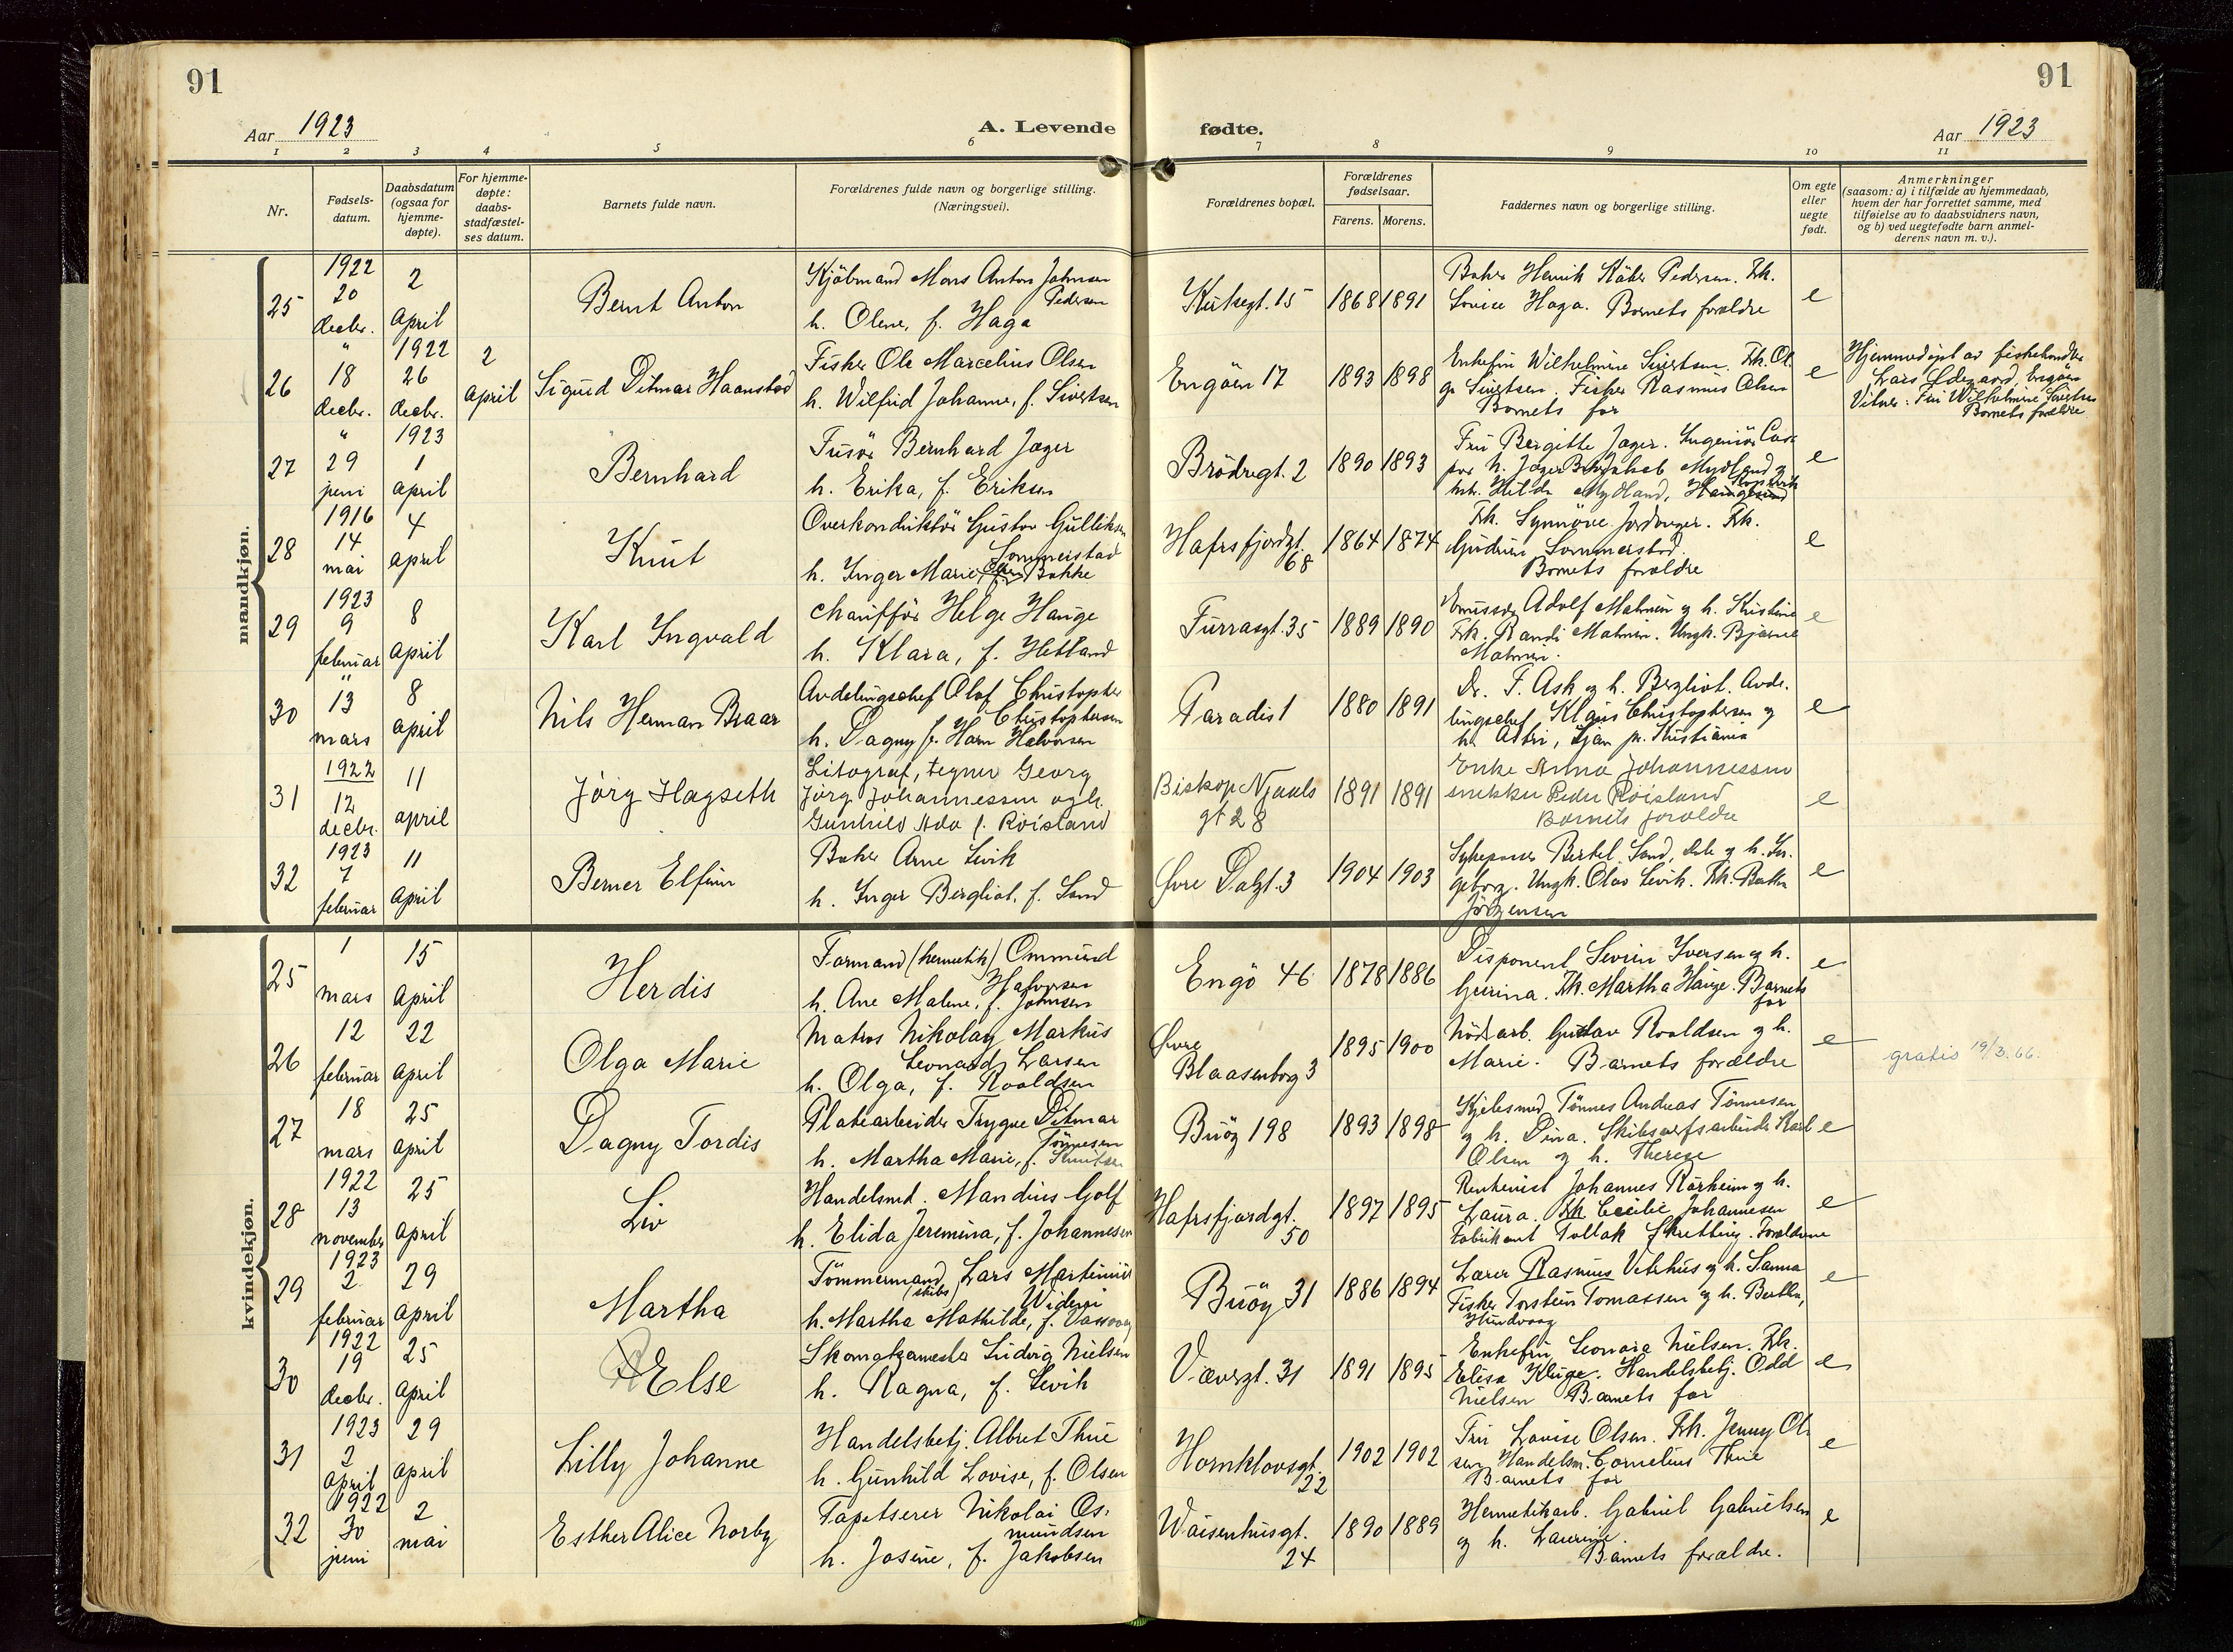 91
91
Aar 1923
A. Levende
fødte.
Aar 1923
1 2 3 4 5 6 7 8 9 10 11
Nr.
Fødsels-
datum.
Daabsdatum
(ogsaa for
hjemme-
døpte).
For hjemme-
døpte:
daabs-
stadfæstel-
ses datum.
Barnets fulde navn.
Forældrenes fulde navn og borgerlige stilling.
(Næringsvei).
Forældrenes bopæl.
Forældrenes
fødselsaar.
Farens. Morens.
Faddernes navn og borgerlige stilling.
Om egte
eller
uegte
født.
Anmerkninger
(saasom: a) i tilfælde av hjemmedaab,
hvem der har forrettet samme, med
tilføielse av to daabsvidners navn,
og b) ved uegtefødte barn anmel-
derens navn m. v.).
mandkjøn.
25
1922
20
decbr.
2
april
Bernt Anton
Kjøbmand Mons Anton Johnsen
Pedersen
h. Olene, f. Haga
Kirkegt. 15
1868 1891
Baker Henrik Pedersen. Frk.
Lovice Haga. Barnets forældre
e
26
"
18
decbr.
1922
26
decbr.
2
april
Sigurd Ditmar Haanstad
Fisker Ole Marcelius Olsen
h. Wilfrid Johanne, f. Sivertsen
Engøen 17
1893 1898
Enkefru Wilhelmine Sivertsen. Frk. Ol
ga Sivertsen. Fisker Rasmus Olsen
Barnets far
e
Hjemmedøpt av fiskehandler
Lars Ødegaard, Engøen
Vitner: Fru Wilhelmine Sivertsen
Barnets forældre
27
"
29
juni
1923
1
april
Bernhard
Frisør Bernhard Jæger
h. Erika, f. Eriksen
Brødregt. 2
1890 1893
Fru Bergitte Jæger. Ingeniør Cas-
par N. Jæger. Jakob Mydland og
h. Hilda Mydland, Kopervik
e
28
1916
14
mai
4
april
Knut
Overkonduktør Gustav Gulliksen
Sommerstad
h. Inger Marie Bakke
Hafrsfjordgt.
68
1864 1874
Frk. Synnøve Jordanger. Frk.
Gudrun Sommerstad.
Barnets forældre
e
29
1923
9
februar
8
april
Karl Ingvald
Chauffør Helge Hauge
h. Klara, f. Hetland
Furrasgt. 35
1889 1890
Adolf Malmin og h. Kristine
Frk. Randi Malmin. Ungk. Bjarne
Malmin.
e
30
"
13
mars
8
april
Nils Herman Braar
Avdelingschef Olaf Christopher
Christophersen
h. Dagny f. Horn Halvorsen
Paradis 1
1880 1891
Dr. F. Ask og h. Bergliot. Avde-
lingschef Klaus Christophersen og
h. Astri, Ljan pr. Kristiania
e
31
1922
12
decbr.
11
april
Jørg Hagseth
Litograf, tegner Georg
Jørg Johannessen og h.
Gunhild Ada f. Røisland
Biskop Njaals
gt 28
1891 1891
Enke Anna Johannessen
snekker Peder Røisland
Barnets forældre
e
32
1923
7
februar
11
april
Berner Elfinn
Baker Arne Levik
h. Inger Bergliot, f. Sand
Øvre Dalgt. 3
1904 1903
Sykepasser Bertel Sand, Dale og h. In-
geborg. Ungk. Olav Levik. Frk.
Jørgensen
e
kvindekjøn.
25
1
mars
15
april
Herdis
Formand (hermetik) Ommund
Halvorsen
h. Ane Malene, f. Johnsen
Engø 46
1878 1886
Disponent Severin Iversen og h.
Gurina. Frk. Martha Hauge. Barnets
far
e
26
12
februar
22
april
Olga Marie
Matros Nikolay Markus
Leonard Larsen
h. Olga, f. Roaldsen
Øvre
Blaasenborg 3
1895 1900
Nødsarb. Gustav Roaldsen og h.
Marie. Barnets forældre
e
gratis 19/3.66.
27
18
mars
25
april
Dagny Tordis
Platearbeider Trygve Ditmar
Tønnesen
h. Martha Marie, f. Knutsen
Buøy 198
1893 1898
Kjelesmed Tønnes Andreas Tønnesen
og h. Dina. Skibsverfsarbeider Karl
Olsen og h. Therese
e
28
1922
13
november
25
april
Liv
Handelsmd. Mandius Golf
h. Elida Jeremina, f. Johannesen
Hafrsfjordgt.
50
1897 1895
Rentenist Johannes Rørheim og h.
Laura. Frk Cecilie Johannesen
Fabrikant Tollak Skretting. Forældrene
e
29
1923
2
februar
29
april
Martha
Tømmermand Lars Martinius
(skibs) Widerøi
h. Martha Mathilde, f. Vassvaag
Buøy 31
1886 1894
Lærer Rasmus Vetrhus og h. Sanna
Fisker Torstein Tomassen og h. Bertha,
Hundvaag
e
30
1922
19
decbr.
25
april
Else
Skomakermester Ludvig Nielsen
h. Ragna, f. Levik
Væversgt. 31
1891 1895
Enkefru Leonora Nielsen. Frk.
Elisa Kluge. Handelsbetj. Odd
Nielsen Barnets far
e
31
1923
2
april
29
april
Lilly Johanne
Handelsbetj. Albert Thue
h. Gunhild Lovise, f. Olsen
Hornklovsgt.
22
1902 1902
Fru Lovise Olsen. Frk. Jenny Ol-
sen Handelsm. Cornelius Thue
Barnets far
e
32
1922
30
juni
2
mai
Esther Alice Norby
Tapetserer Nikolai Os-
mundsen
h. Josine, f. Jakobsen
Waisenhusgt.
24
1890 1889
Hermetikarb. Gabriel Gabrielsen
og h. Laurine.
Barnets forældre.
e